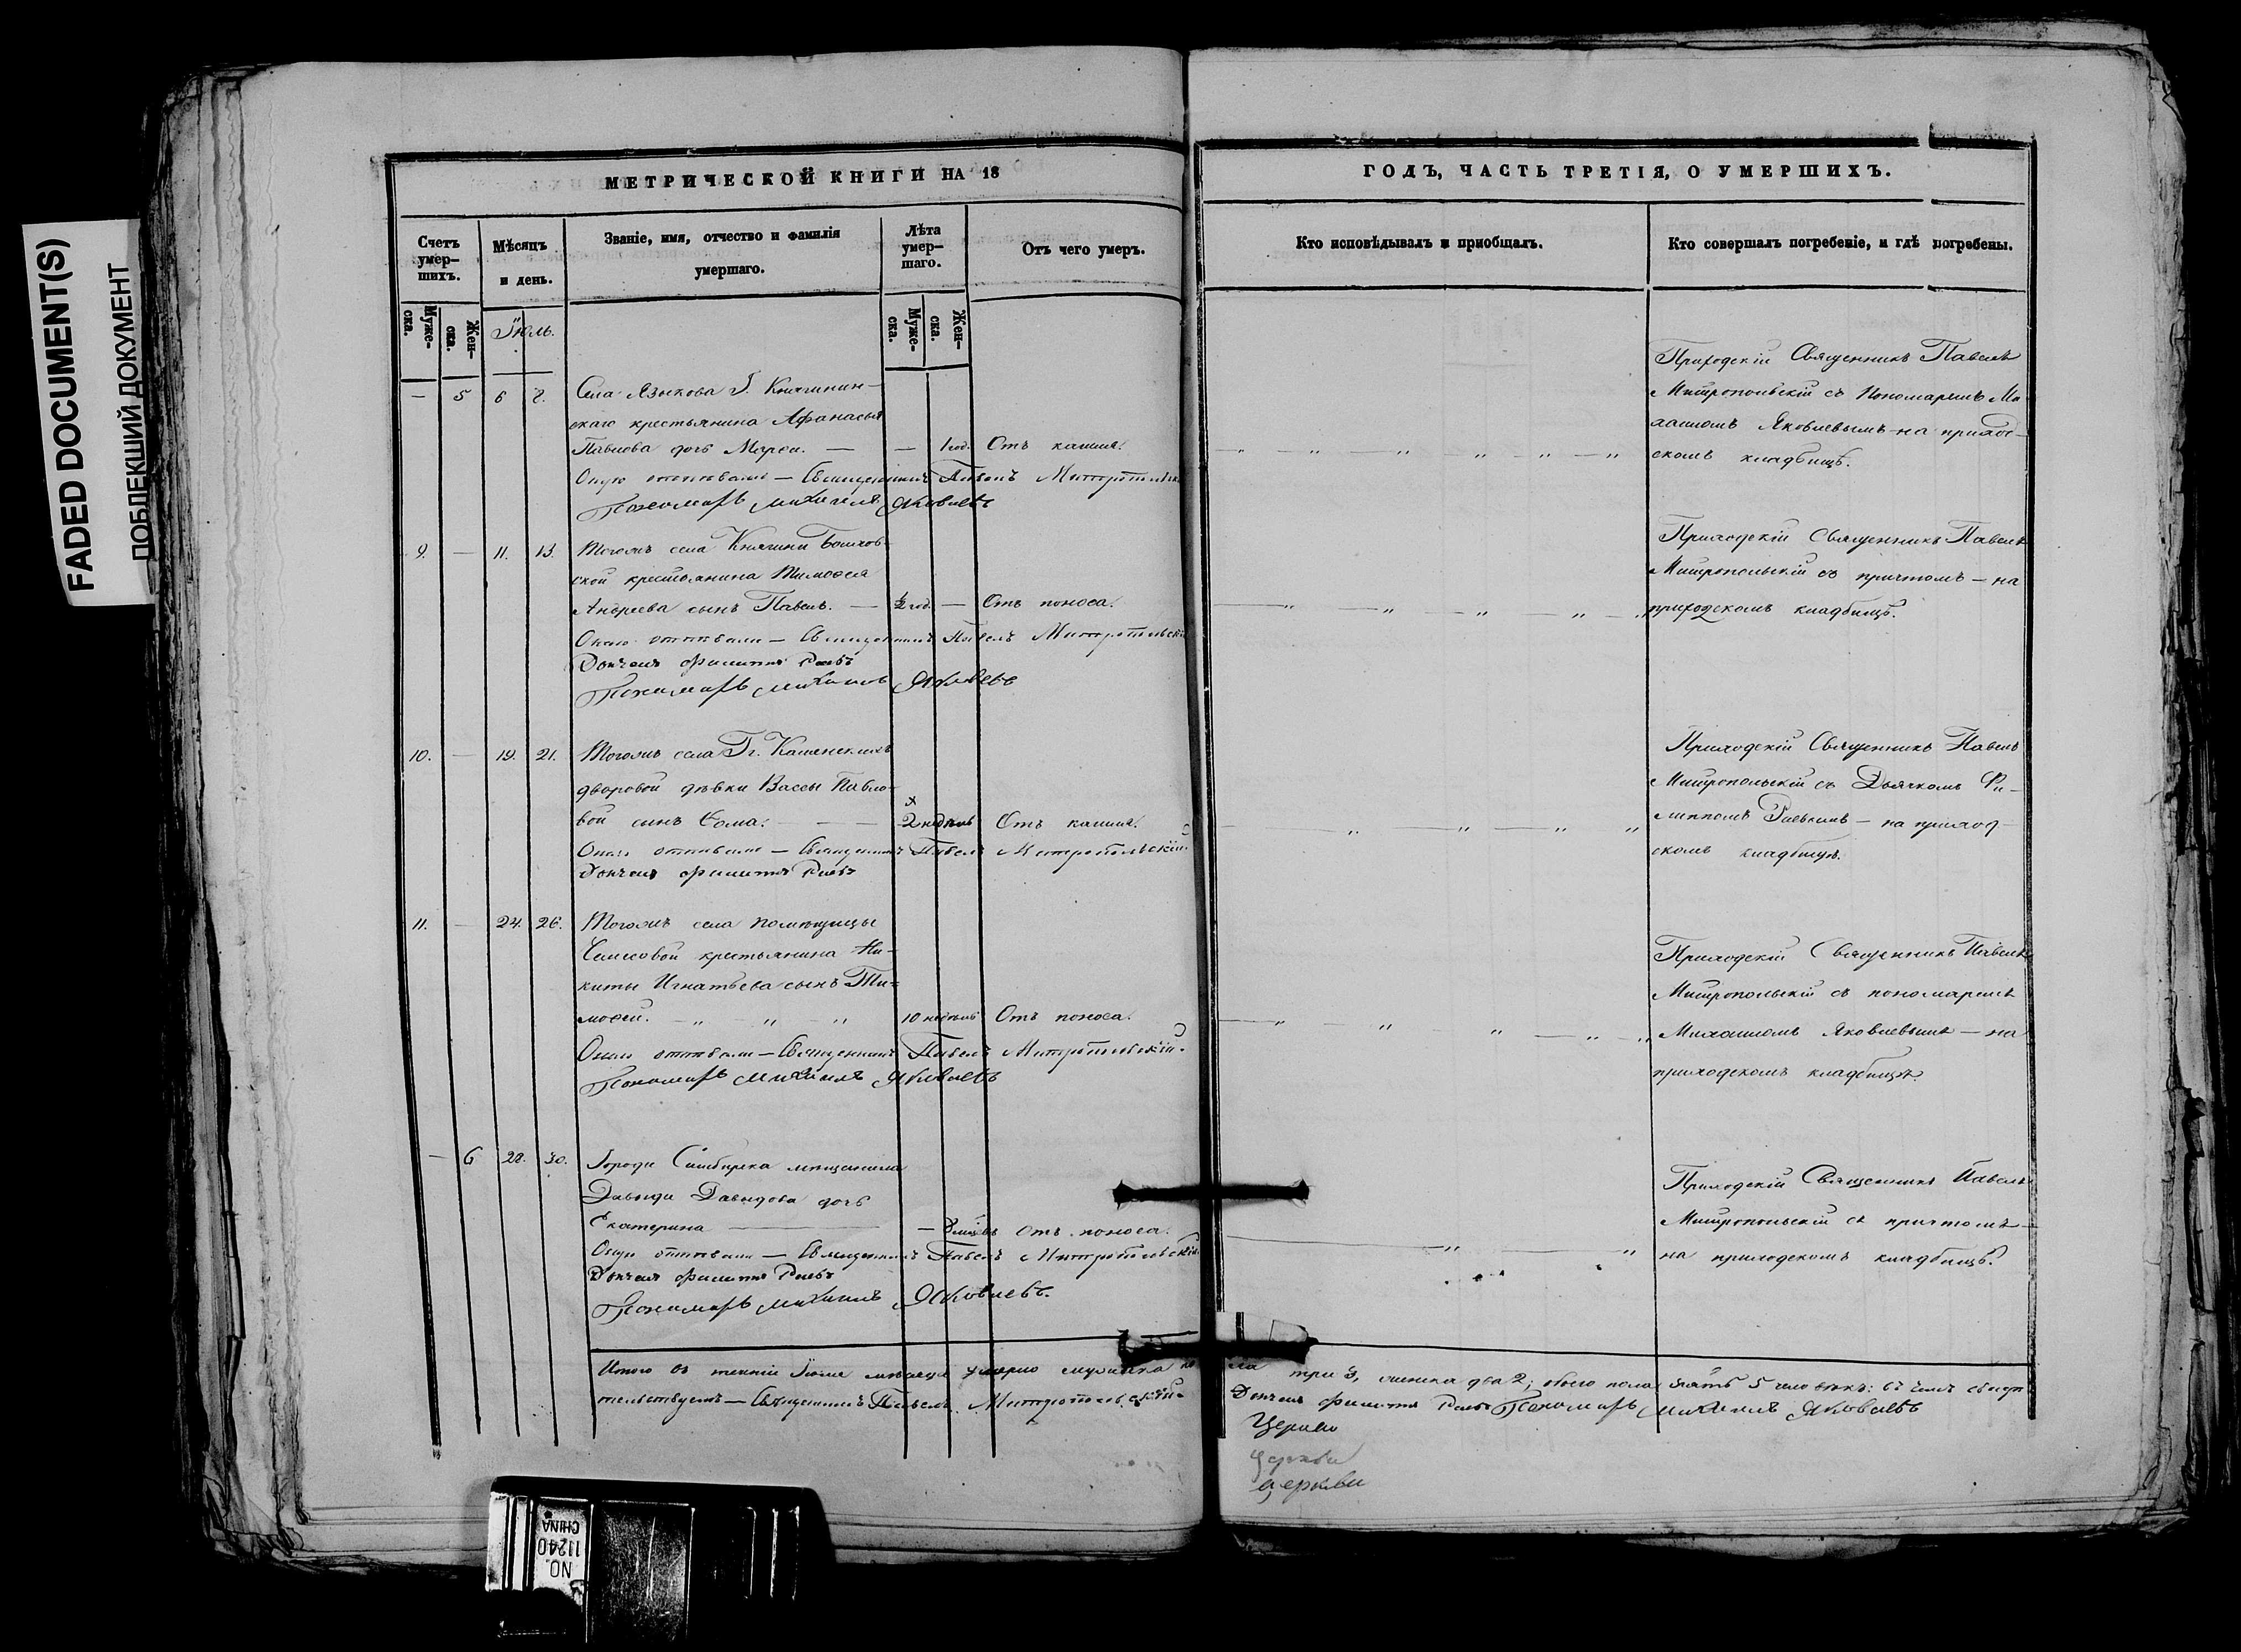 FADED DOCUMENT(S)
ПОБЛЕКШИЙ ДОКУМЕНТ
МЕТРИЧЕСКОЙ КНИГИ НА 18
Счетъ умер-
шихъ.
Мѣсяцъ
и день.
Званіе, имя, отчество и фамилія
умершаго.
Лѣта
умер-
шаго.
Отъ чего умеръ.
Муже-
ска.
Жен-
ска.
Іюль.
Муже-
ска.
Жен-
ска.
— 5 6 8. Села Языкова Г. Княгинин-
скаго крестьянина Афанасья
Павлова дочь — — 1 год. Отъ кашля.
Оную отпѣвали — Священникъ Павелъ Митропольскій
Пономарь Михаилъ Яковлевъ
9. — 11. 13. Тогожъ села Княгини
крестьянина Тимоѳея
Андреева сынъ Павелъ. — ½ год. — Отъ поноса.
Онаго отпѣвали — Священникъ Павелъ Митропольскій
Дьячекъ Филиппъ
Пономарь Михаилъ Яковлевъ
10. — 19. 21. Тогожъ села Гг. Каменскихъ
дворовой дѣвки Вассы Павло-
вой сынъ Ѳома. — — 2 недѣль Отъ кашля.
Онаго отпѣвали — Священникъ Павелъ Митропольскій.
Дьячекъ Филиппъ
11. — 24. 26. Тогожъ села помѣщицы
крестьянина Ни-
киты Игнатьева сынъ Ти-
моѳей. — „ — „ — „ 10 недѣль Отъ поноса.
Онаго отпѣвали — Священникъ Павелъ Митропольскій.
Пономарь Михаилъ Яковлевъ
— 6 28. 30. Города Симбирска мѣщанина
Давыда Давыдова дочь
Екатерина — — Отъ поноса.
Оную отпѣвали — Священникъ Павелъ Митропольскій
Дьячекъ Филиппъ
Пономарь Михаилъ Яковлевъ.
Итого въ теченіи Іюля мѣсяца умерло мужеска по
тельствуемъ — Священникъ Павелъ Митропольскій
ГОДЪ, ЧАСТЬ ТРЕТІЯ, О УМЕРШИХЪ.
Кто исповѣдывалъ и пріобщалъ.
Кто совершалъ погребеніе, и гдѣ погребены.
Приходскій Священникъ Павелъ
Митропольскій съ Пономаремъ Ми
хаиломъ Яковлевымъ — на приход-
скомъ кладбищѣ.
Приходскій Священникъ Павелъ
Митропольскій съ причтомъ — на
приходскомъ кладбищѣ.
Приходскій Священникъ Павелъ
Митропольскій съ Дьячкомъ Фи-
липпомъ — на приход-
скомъ кладбищѣ.
Приходскій Священникъ Павелъ
Митропольскій съ пономаремъ
Михаиломъ Яковлевымъ — на
приходскомъ кладбищѣ.
Приходскій Священникъ Павелъ
Митропольскій съ причтомъ —
на приходскомъ кладбищѣ.
ла три 3, женска два 2; обоего пола пять 5 человѣкъ: въ чемъ свидѣ
Дьячекъ Филиппъ Пономарь Михаилъ Яковлевъ
Церкви
Церкви
церкви
NO.
11240
CHINA